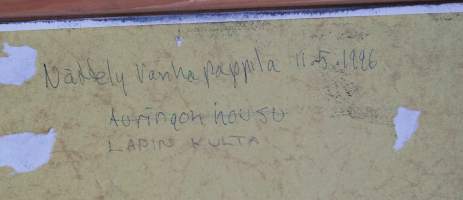 Näyttely Vanhapappila 11.5.1996
Auringon nousu
LAPIN KULTA